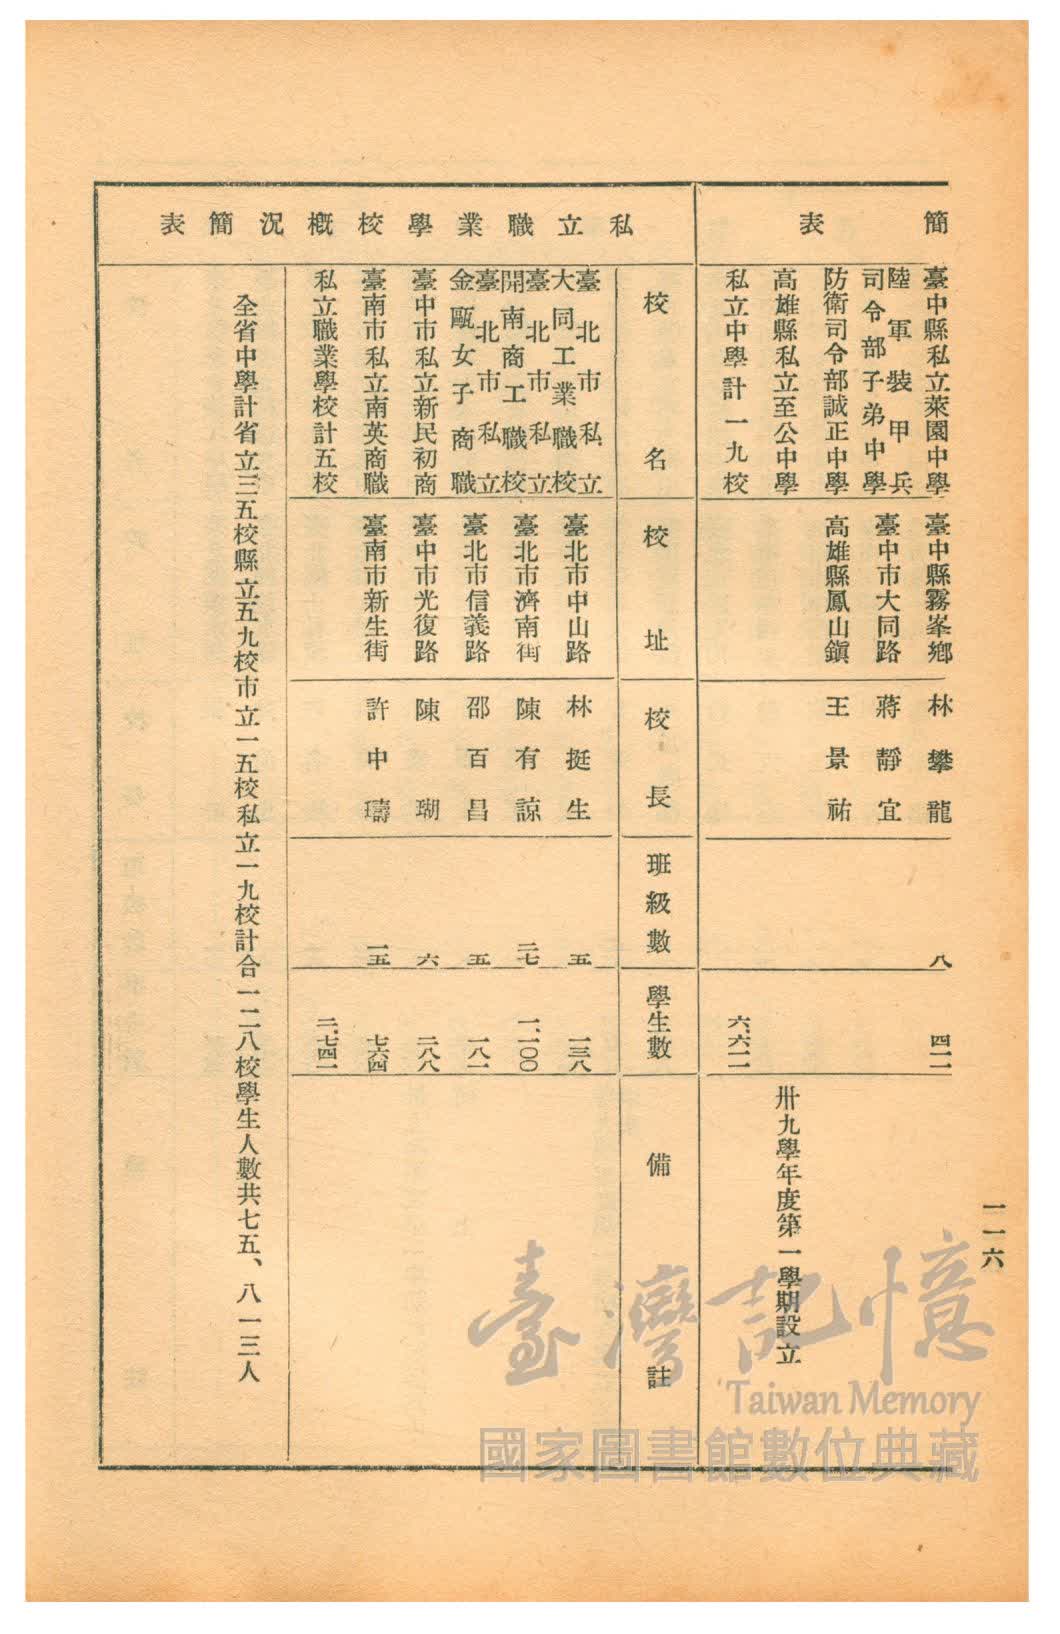 一一六
簡表
臺中縣私立萊園中學 臺中縣霧峯鄉 林攀龍 八 四二一
陸軍裝甲兵司令部子弟中學 臺中市大同路 蔣靜宜
防衛司令部誠正中學 高雄縣鳳山鎮 王景祐
高雄縣私立至公中學 卅九學年度第一學期設立
私立中學計一九校 六、六二一
私立職業學校概況簡表
校名 校址 校長 班級數 學生數 備註
臺北市私立大同工業職校 臺北市中山路 林挺生 五 一三八
臺北市私立開南商工職校 臺北市濟南街 陳有諒 二七 一、一〇〇
臺北市私立金甌女子商職 臺北市信義路 邵百昌 五 一八二
臺中市私立新民初商 臺中市光復路 陳瑚 六 二八八
臺南市私立南英商職 臺南市新生街 許中璹 一五 七六四
私立職業學校計五校 二、七四一
全省中學計省立三五校縣立五九校市立一五校私立一九校計合一二八校學生人數共七五、八一三人
臺灣記憶
Taiwan Memory
國家圖書館數位典藏